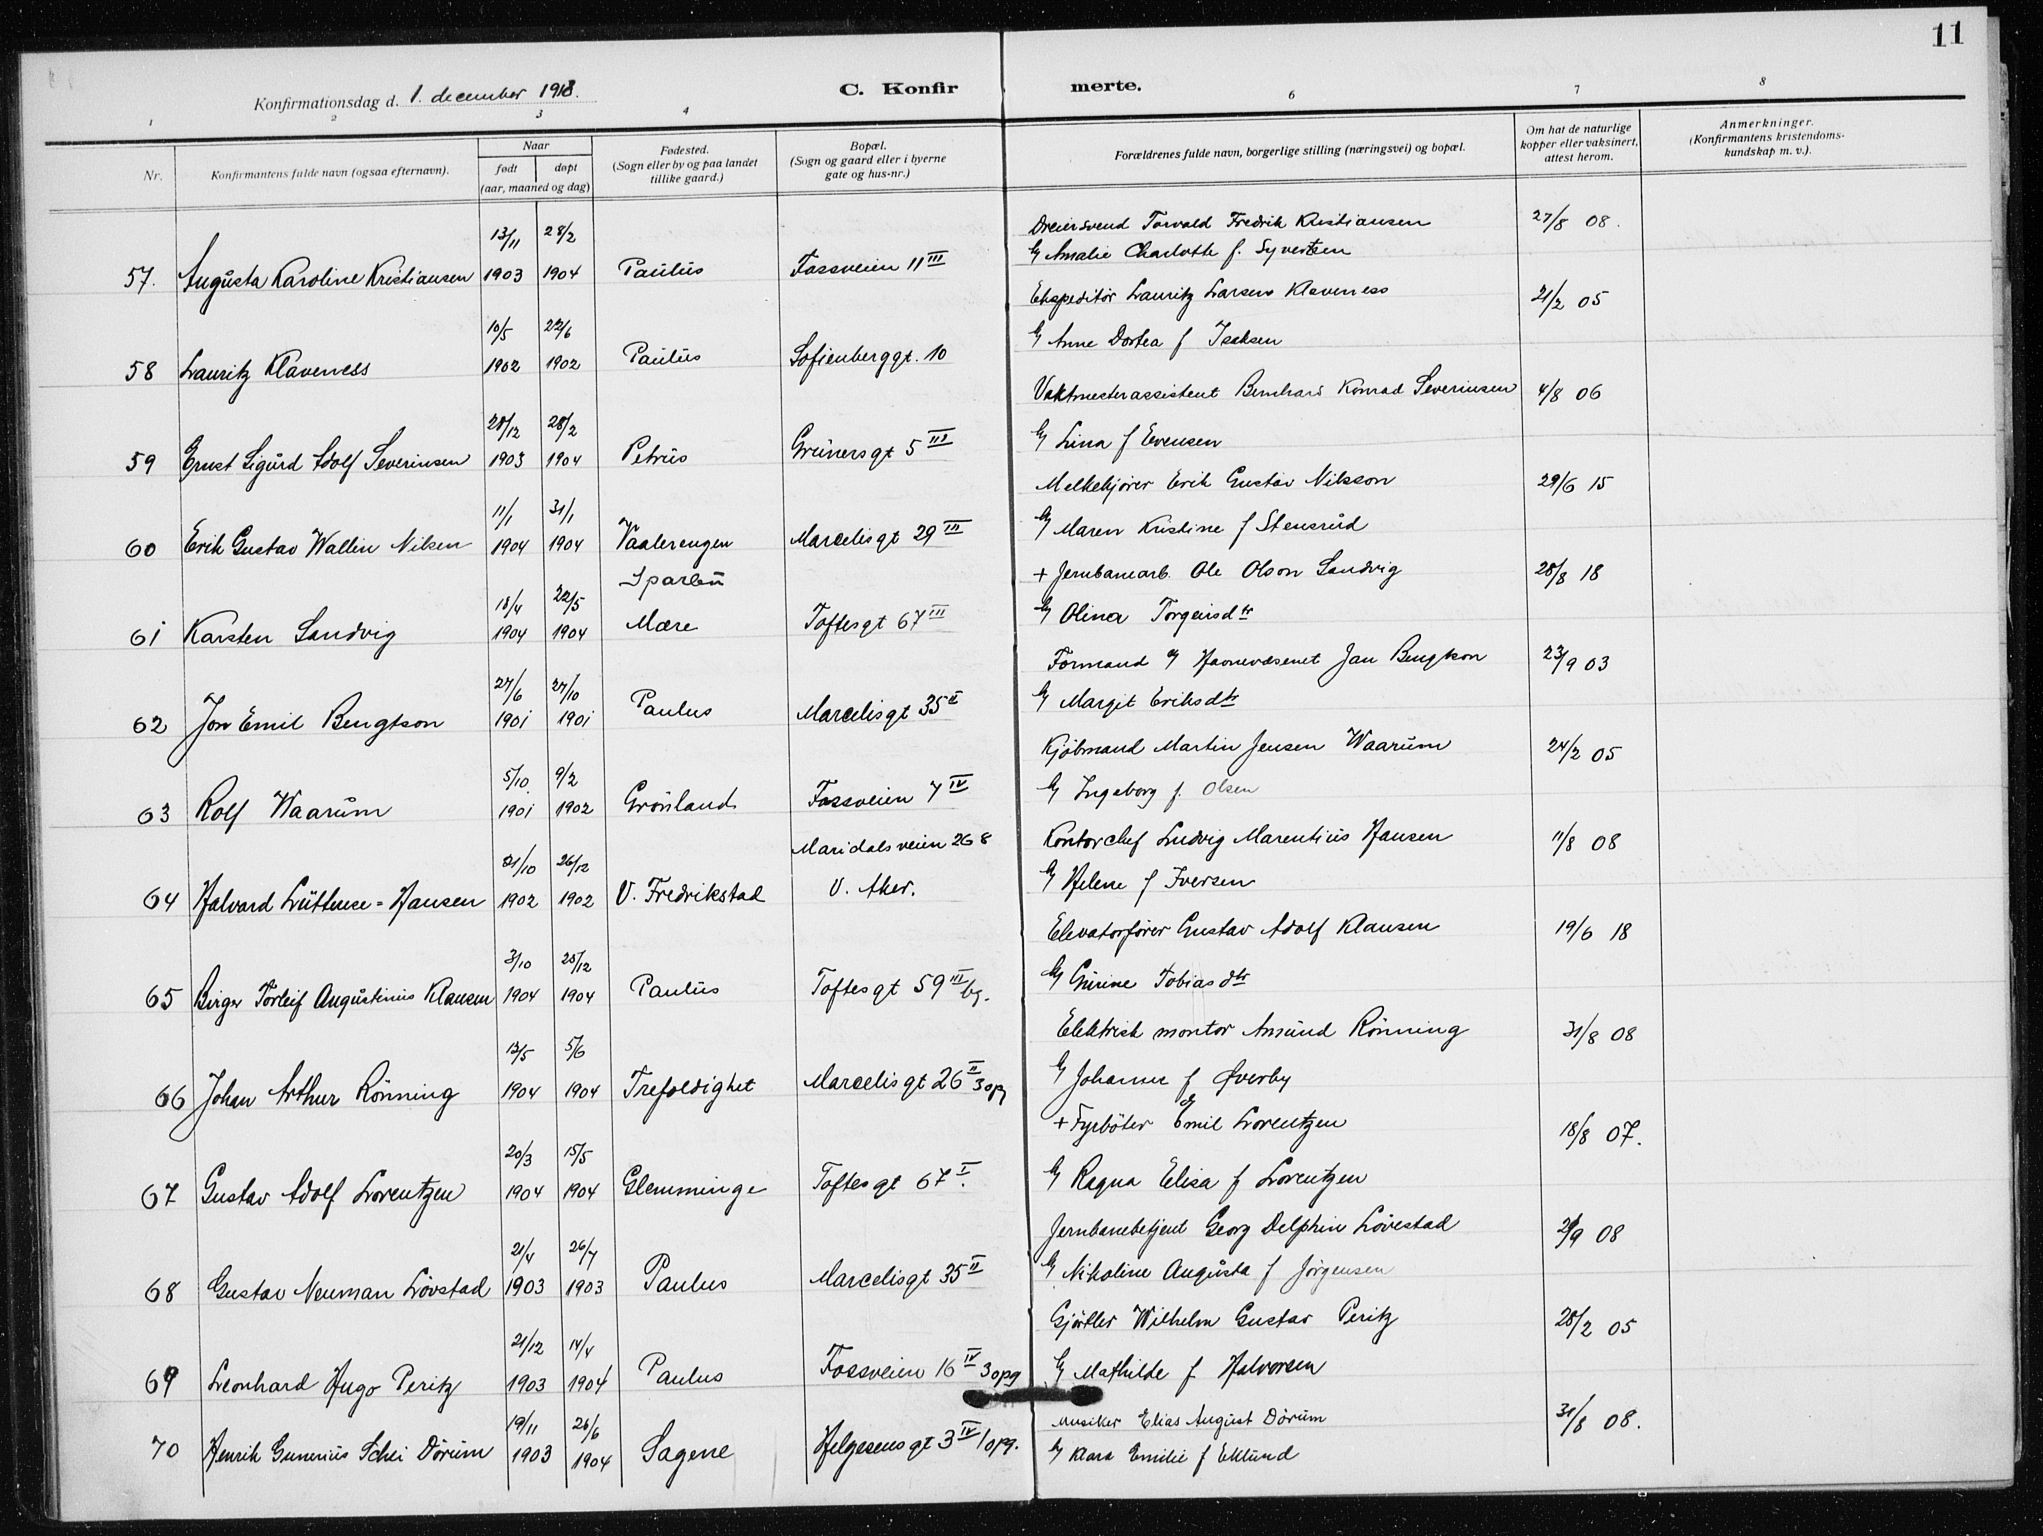 11
Konfirmationsdag d. 1. december 1918. C. Konfirmerte.
1 2 3 4 6 7 8
Nr. Konfirmantens fulde navn (ogsaa efternavn). Naar født døpt (aar, maaned og dag) Fødested. (Sogn eller by og paa landet tillike gaard.) Bopæl. (Sogn og gaard eller i byerne gate og hus-nr.) Forældrenes fulde navn, borgerlige stilling (næringsvei) og bopæl. Om hat de naturlige kopper eller vaksinert, attest herom. Anmerkninger. (Konfirmantens kristendoms-kundskap m. v.).
13/11 28/2 Dreiersvend Torvald Fredrik Kristiansen 27/8 08.
57. Augusta Karoline Kristiansen 1903 1904 Paulus Fossveien 11 III og Amalie Charlotte f. Syvertsen
10/5 22/6 Ekspeditør Lauritz Larsen Klaveness 21/2 05
58 Lauritz Klaveness 1902 1902 Paulus Sofienberggt. 10 og Anne Dortea f Isaksen
28/12 28/2 Vaktmesterassistent Bernhard Konrad Severinsen 4/8 06
59 Ernst Sigurd Adolf Severinsen 1903 1904 Petrus Grünersgt 5 III og Lina f Evensen
11/1 31/1 Melkekjører Erik Gustav Nilsson 29/6 15
60 Erik Gustav Wallin Nilsen 1904 1904 Vaalerengen Marcelisgt 29 III og Maren Kristine f Stensrud
18/4 22/5 Sparbu + Jernbanearb. Ole Olson Sandvig 28/8 18
61 Karsten Sandvig 1904 1904 Mære Toftesgt 67 III og Olina Torgeirsdtr
27/6 27/10 Formand v Havnevæsenet Jan Bengtson 23/9 03
62 Jon Emil Bengtson 1901 1901 Paulus Marcelisgt 35 II og Margit Eriksdtr
5/10 9/2 Kjøbmand Martin Jensen Waarum 24/2 05
63 Rolf Waarum 1901 1902 Grønland Fossveien 7 IV og Ingeborg f. Olsen
21/10 26/12 Maridalsveien 268 Kontorchef Ludvig Marentius Hansen 11/8 08
64 Halvard Lüttense=Hansen 1902 1902 V. Fredrikstad V. Aker. og Helene f Iversen
3/10 25/12 Elevatorfører Gustav Adolf Klausen 19/6 18
65 Birger Torleif Augustinius Klausen 1904 1904 Paulus Toftesgt 59 III bg. og Gurine Tobiasdtr
13/5 5/6 Elektrisk montør Amund Rönning 31/8 08
66 Johan Arthur Rönning 1904 1904 Trefoldighet Marcelisgt 26 II 3opg og Johanne f Øverby
20/3 15/5 + Fyrbøter Emil Lorentzen 18/8 07.
67 Gustav Adolf Lorentzen 1904 1904 Glemminge Toftesgt 67 I. og Ragna Elisa f Lorentzen
21/4 26/7 Jernbanebetjent Georg Delphin Lövestad 2/9 08
68 Gustav Neuman Lövstad 1903 1903 Paulus Marcelisgt 35 II og Nikoline Augusta f Jörgensen
21/12 14/4 Gjørtler Wilhelm Gustav Peritz 28/2 05
69 Leonhard Hugo Peritz 1903 1904 Paulus Fossveien 16 IV 3opg og Mathilde f Halvorsen
19/11 26/6 Musiker Elias August Dörum 31/8 08.
70 Henrik Gunerius Schei Dörum 1903 1904 Sagene Helgesensgt 3 IV 1opg. og Klara Emilie f Eklund